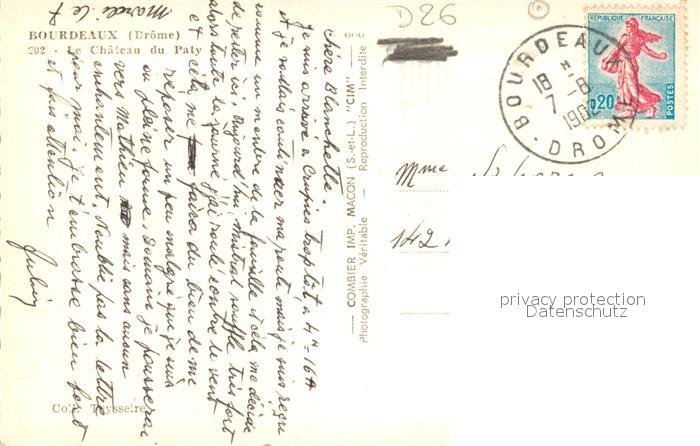 BOURDEAUX (Drôme)
202 - Le Château du Paty
Mardi le 7
chère Blanchette.
Je suis arrivé à Crupies trop tôt à 4H - 16H
et je voulais continuer ma route mais je suis reçu
comme un membre de la famille et cela me décide
de rester ici. Aujourd'hui Mistral souffle très fort
alors toute la journée j'ai roulé contre le vent
et cela me faire du bien de me
reposer un peu malgré que je suis
en pleine forme. Demain je pousserai
vers Mathieu mais sans aucun
enchantement. N'oublie pas la lettre
pour moi. Je t'embrasse bien fort
et fais attention
Coll. Teysseire
COMBIER IMP. MACON (S.-et-L.) "CIM"
Photographie Véritable - Reproduction Interdite
D26
BOURDEAUX
18 H
7 - 8
1962
DROME
REPUBLIQUE FRANÇAISE
0,20
POSTES
Mme
142
privacy protection
Datenschutz